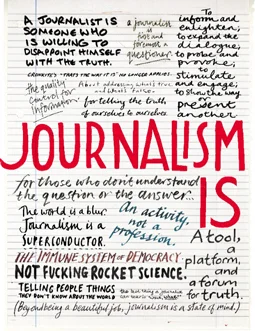 A JOURNALIST IS
SOMEONE WHO
IS WILLING TO
DISAPPOINT HIMSELF
WITH THE TRUTH.
a journalist
is first and
foremost a
questioner.
To
inform and
enlighten;
to expand the
dialogue;
to probe and
provoke;
to
stimulate
and engage;
to show the way
or
present
another
CRONKITE'S "THAT'S THE WAY IT IS" NO LONGER APPLIES.
The quality
control for
information.
About addressing what's true
and what's false.
for telling the truth
of ourselves to ourselves.
JOURNALISM
IS
for those who don't understand
the question or the answer...
The world is a blur.
Journalism is a
SUPERCONDUCTOR.
An activity,
not a
profession.
THE IMMUNE SYSTEM OF DEMOCRACY.
NOT FUCKING ROCKET SCIENCE.
TELLING PEOPLE THINGS
THEY DON'T KNOW ABOUT THE WORLD
A tool,
a
platform,
and
a forum
for truth.
(Beyond being a beautiful job, journalism is a state of mind.)